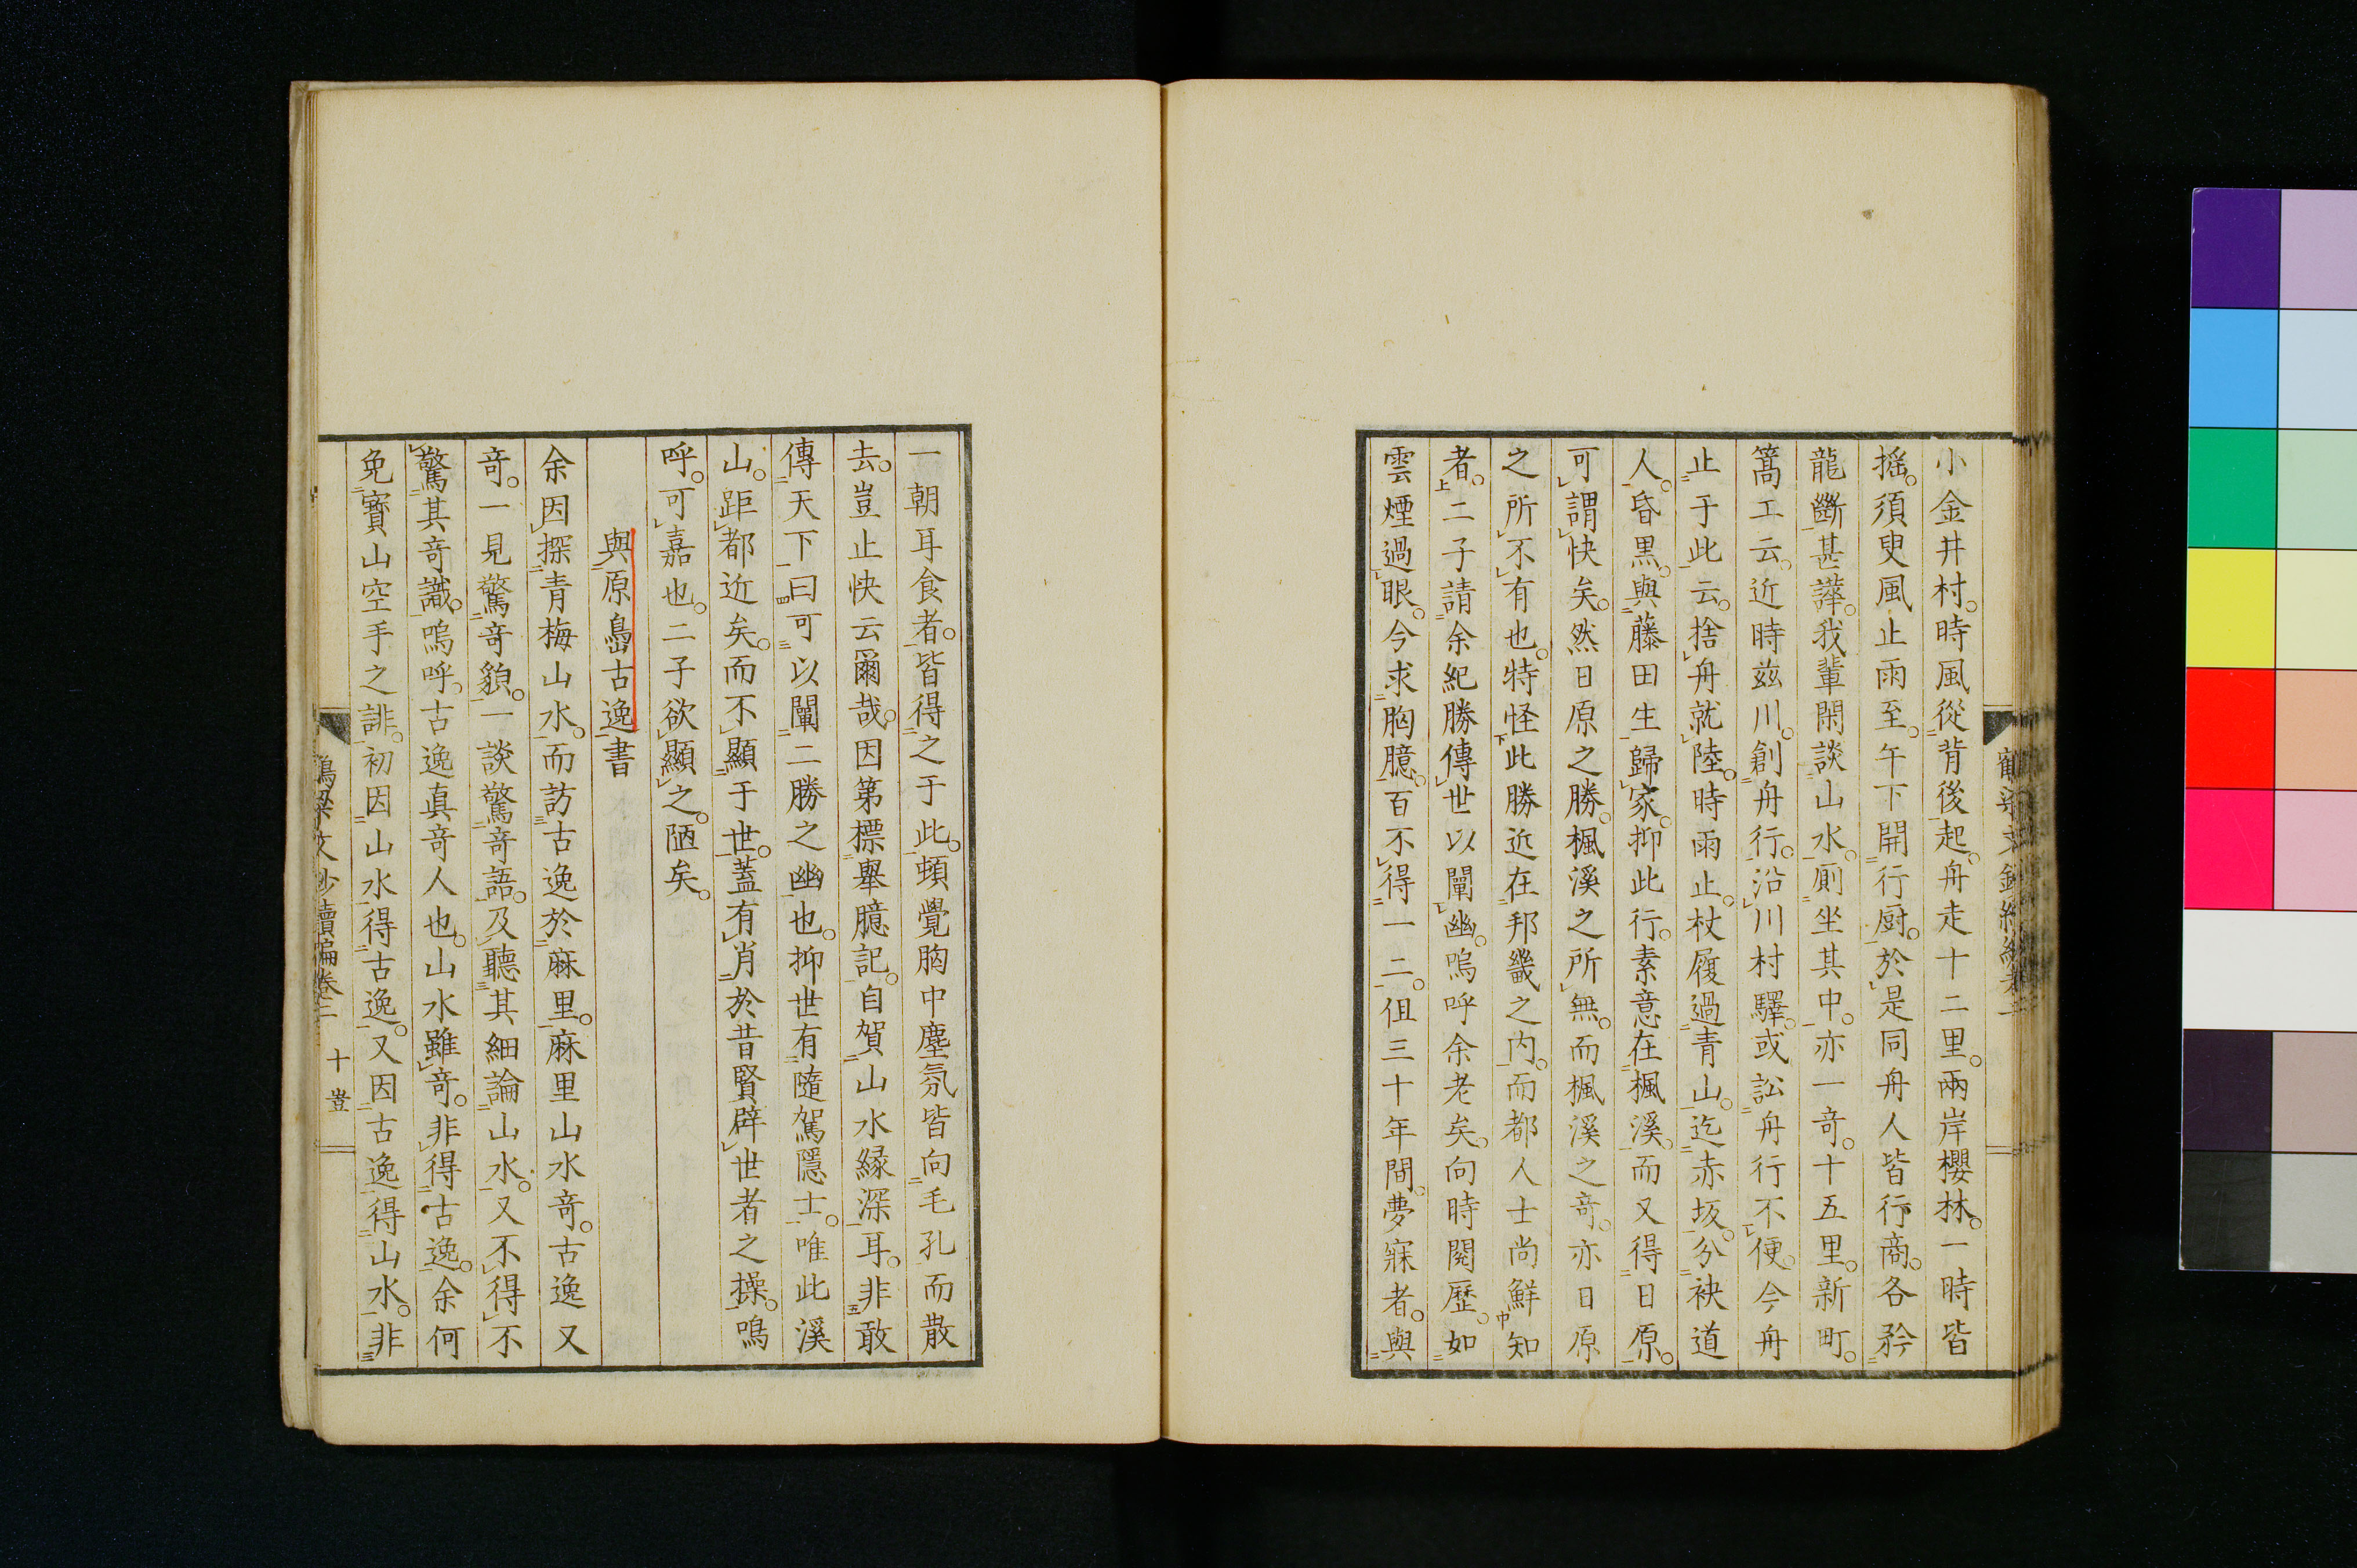 小金井村。時風從背後起。舟走十二里。兩岸櫻林。一時皆
搖。須臾風止雨至。午下開行厨。於是同舟人皆行商。各矜
龍斷甚譁。我輩閑談山水。厠坐其中。亦一奇。十五里。新町。
篙工云。近時茲川。創舟行。沿川村驛。或訟舟行不便。今舟
止于此云。捨舟就陸。時雨止。杖履過青山。迄赤坂。分袂道
人。昏黒。與藤田生歸家。抑此行。素意在楓溪。而又得日原。
可謂快矣。然日原之勝。楓溪之所無。而楓溪之奇。亦日原
之所不有也。特怪此勝近在邦畿之内。而都人士尚鮮知
者。二子請余紀勝傳世以闡幽。嗚呼余老矣。向時閲歷。如
雲煙過眼。今求胸臆。百不得一二。但三十年間。夢寐者。與
一朝耳食者。皆得之于此。頓覺胸中塵氛皆向毛孔而散
去。豈止快云爾哉。因第標舉臆記。自賀山水縁深耳。非敢
傳天下曰可以闡二勝之幽也。抑世有隨駕隱士。唯此溪
山。距都近矣。而不顯于世。蓋有肖於昔賢辟世者之操。嗚
呼。可嘉也。二子欲顯之。陋矣。
與原島古逸書
余因探青梅山水。而訪古逸於麻里。麻里山水奇。古逸又
奇。一見驚奇貌。一談驚奇語。及聽其細論山水。又不得不
驚其奇識。嗚呼。古逸真奇人也。山水雖奇。非得古逸。余何
免寶山空手之誹。初因山水得古逸。又因古逸得山水。非
鶴梁文鈔續編卷二 十 豈